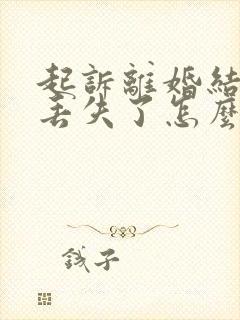 起訴離婚結
丟失了怎麼
錢子